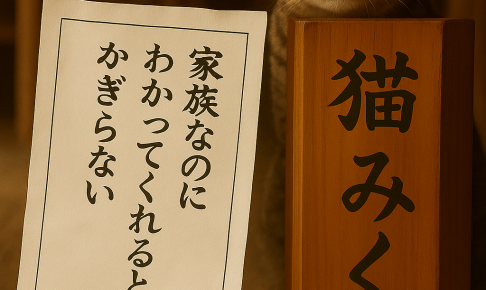 猫みく
家族なのに
わかってくれると
かぎらない